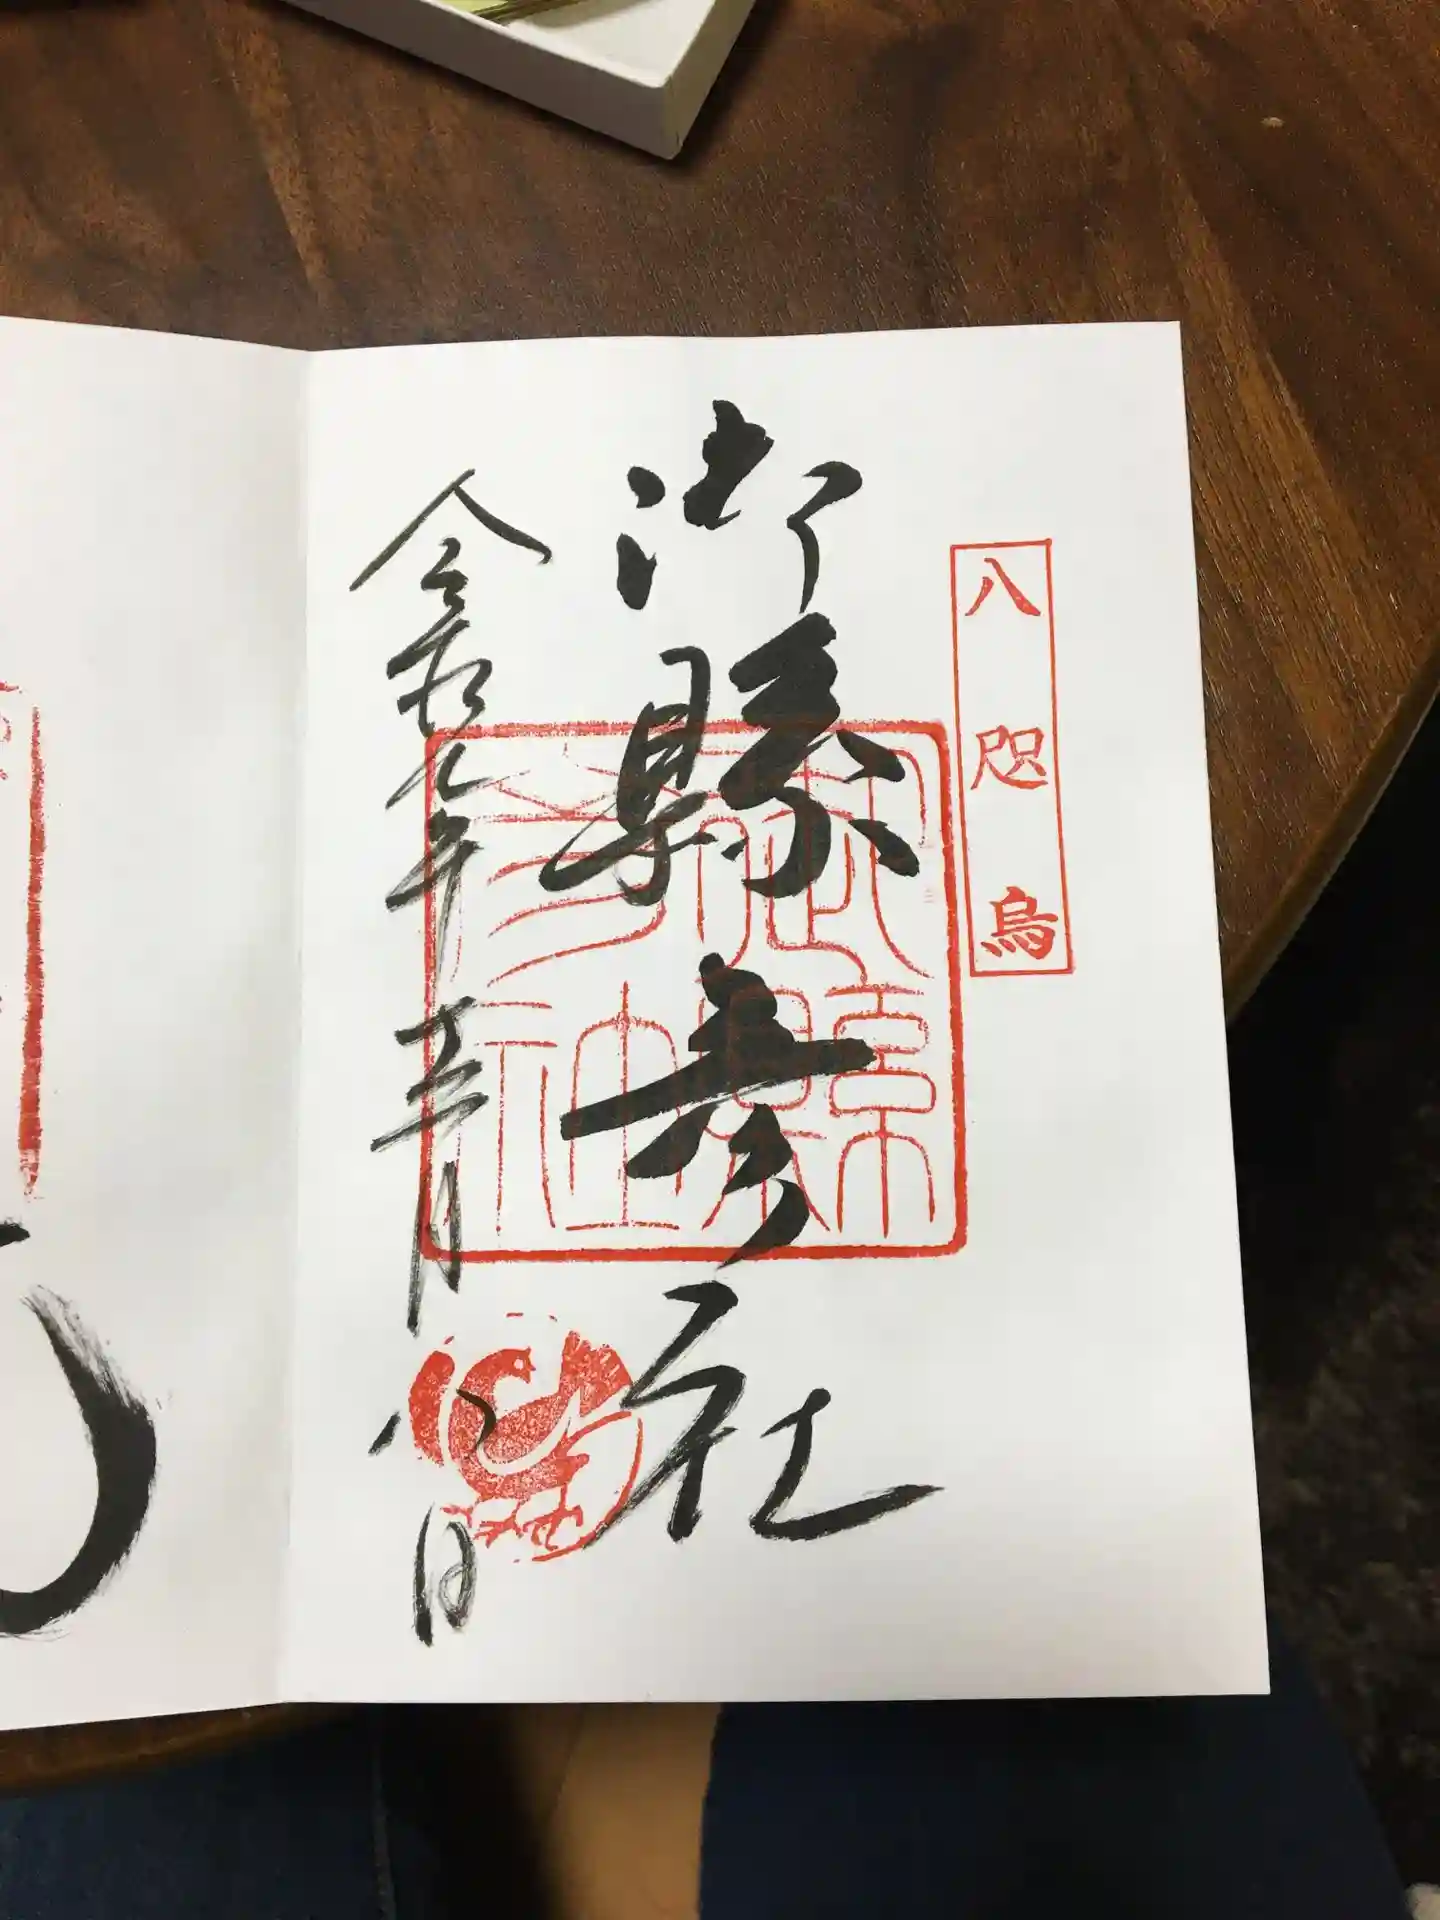 八咫烏
御縣彦社
令和元年五月八日